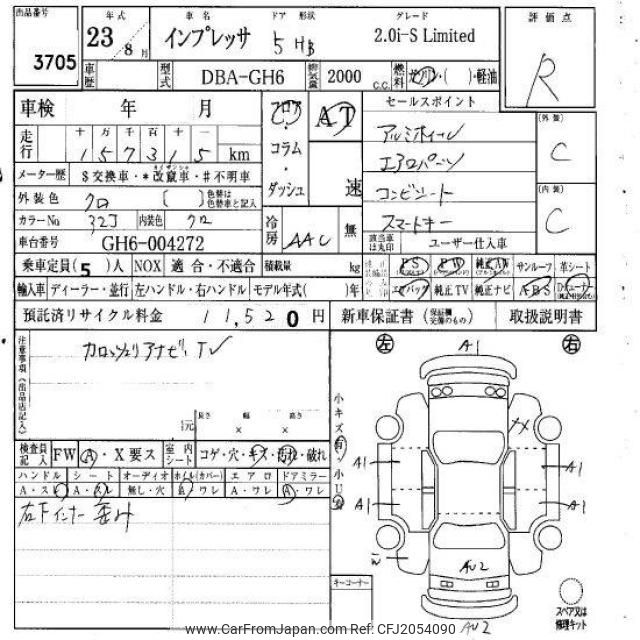 出品番号 3705
年式 23年 8月
車名 インプレッサ
ドア 形状 5 HB
グレード 2.0i-S Limited
評価点 R
車歴
型式 DBA-GH6
排気量 2000 C.C.
燃料 ガソリン・( )・軽油
車検 年 月
フロア・コラム・ダッシュ
AT 速
セールスポイント
アルミホイール
エアロパーツ
コンビシート
スマートキー
(外装) C
(内装) C
走行 十 万 千 百 十 一
157315 km
メーター歴 $交換車・*改竄車・#不明車
外装色 クロ ( ) 色替は色替車と記入
カラーNo 32J 内装色 クロ
冷房 AAC 無
該当車は丸印 ユーザー仕入車
車台番号 GH6-004272
乗車定員(5)人 NOX 適合・不適合 積載量 kg
PS PW 純正AW サンルーフ 革シート
輸入車 ディーラー・並行 左ハンドル・右ハンドル モデル年式( )年
エアバック 純正TV 純正ナビ ABS
預託済リサイクル料金 11,520円
新車保証書 (保証欄完備のもの) 取扱説明書
注意事項(出品店記入)
カロッツェリアナビ、TV
長さ 幅 高さ
× ×
左 右
A1
小キズ有・小U有
検査員記入 FW A・X要ス 室内シート コゲ・穴・キズ・汚れ・破れ
ハンドル シート オーディオ ホイル(カバー) エアロ ドアミラー
A・スレ A・スレ 無し・穴 A・ワレ A・ワレ A・ワレ
右下インナー歪み
A1 A1
A1 A1
AU2
キーコーナー
スペア又は修理キット
AU2
www.CarFromJapan.com Ref: CFJ2054090